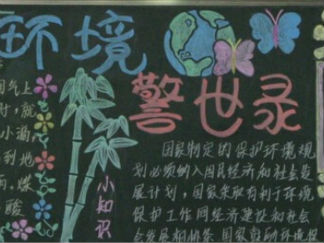 环境
警世录
气上
时,就
小滴
到地
酸
小知识
国家制定的保护环境规
划必须纳入国民经济和社会发
展计划,国家采取有利于环境
保护工作同经济建设和社会